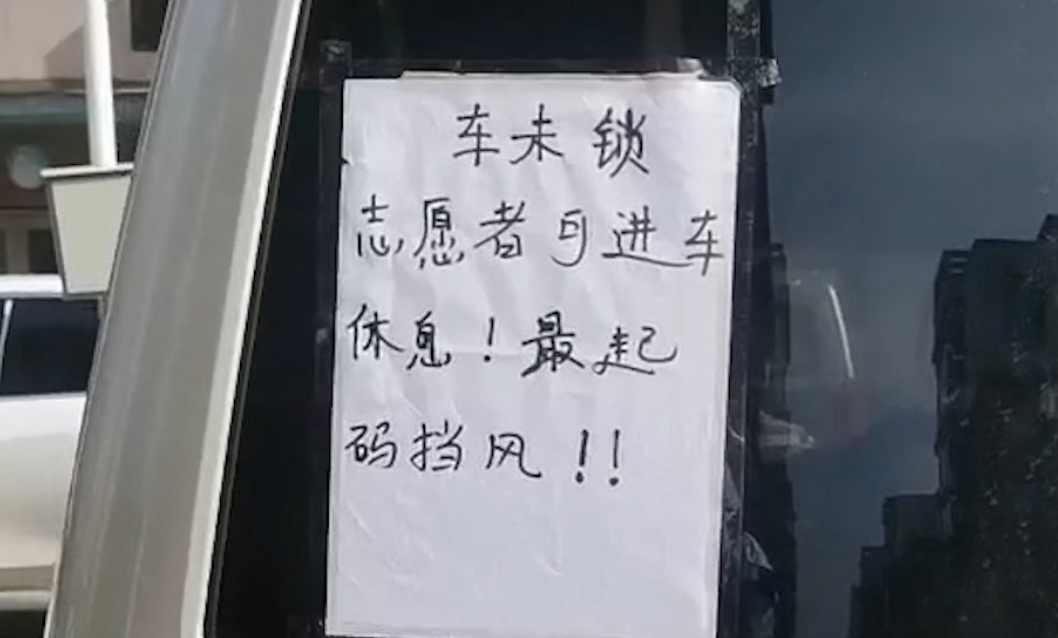 车未锁
志愿者可进车
休息！最起
码挡风！！